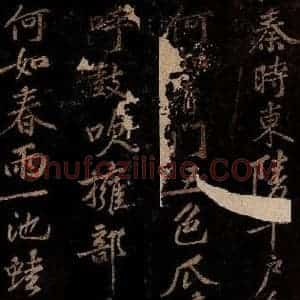 秦時東陵千戶
何門五色瓜
呼鼓吹擁部
何如春雨一池蛙
Shufaziliao.com